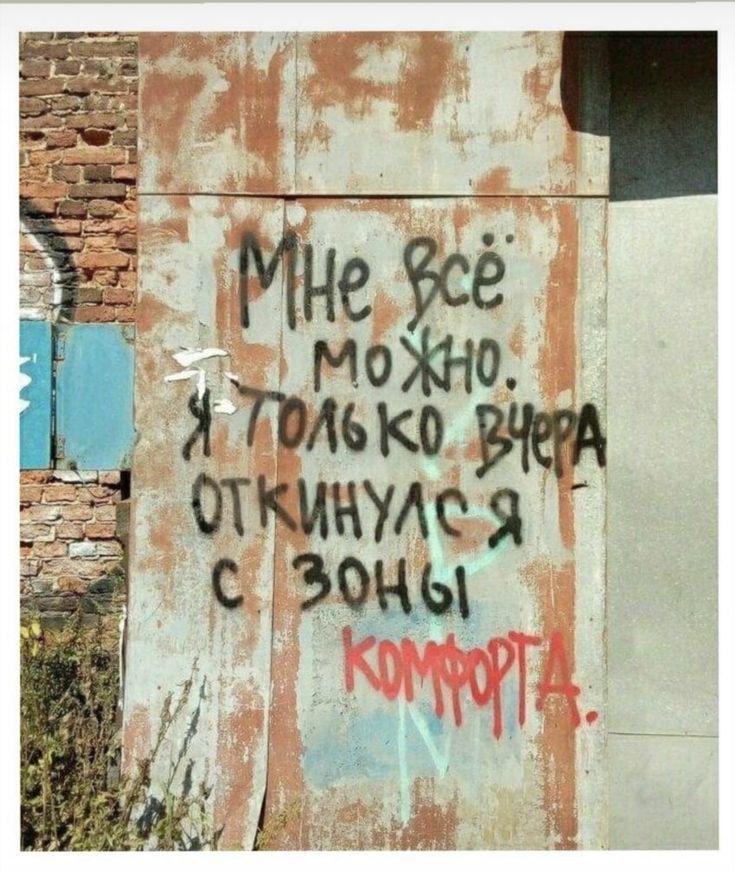 Мне всё
можно.
Я только вчера
откинулся
с зоны
комфорта.